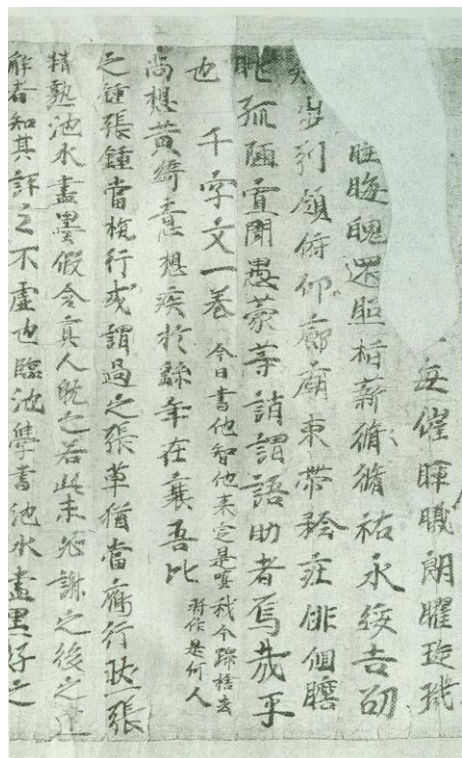 每催暉曦朗曜琁璣
晦魄還照指薪脩脩祐永綏吉劭
步引領俯仰廊廟束帶矜莊俳佪瞻
眺孤陋寡聞愚蒙等誚謂語助者焉哉乎
也 千字文一卷 今日書他智他来定是嗔我今歸捨去 將作是何人
尚想黃綺意想疾於繇年在襄吾比
之鍾張鍾當抗行或謂過之張草猶當鴈行然張
精熟池水盡墨假令真人耽之若此未必謝之後之達
解者知其評之不虛也臨池學書池水盡黑好之